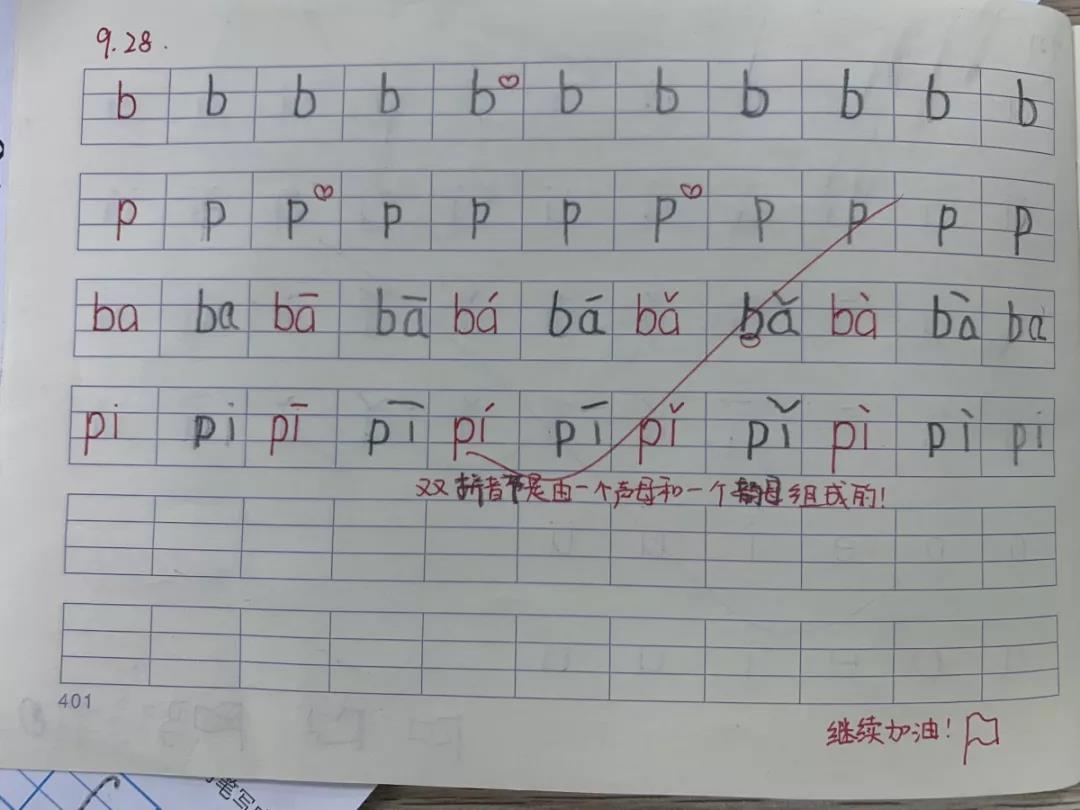 9.28.
b b b b b b b b b b b
p p p p p p p p p p p
ba ba bā bā bá bá bǎ bǎ bà bà ba
pi pi pī pī pí pí pǐ pǐ pì pì pi
双拼音节是由一个声母和一个韵母组成的!
401
继续加油!
笔写